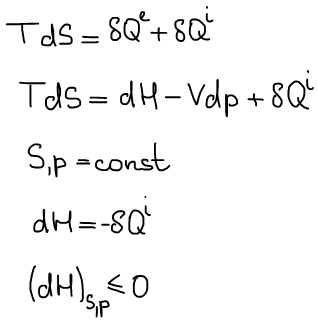 TdS = δQᵉ + δQⁱ
TdS = dH − Vdp + δQⁱ
S,p = const
dH = -δQⁱ
(dH)S,p ≤ 0